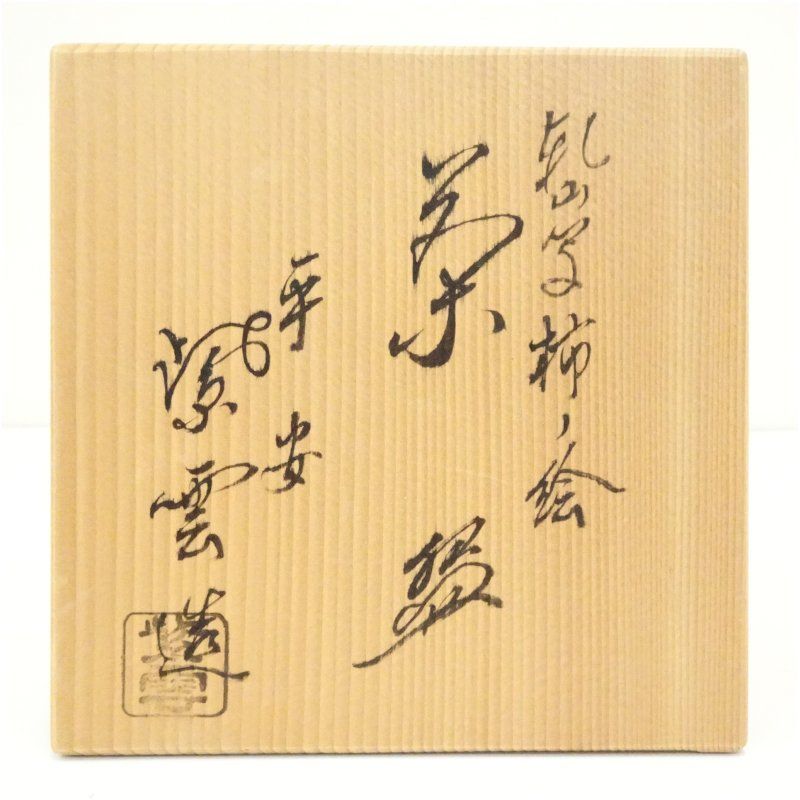 乾山写柿ノ絵
茶碗
平安
紫雲造
紫雲